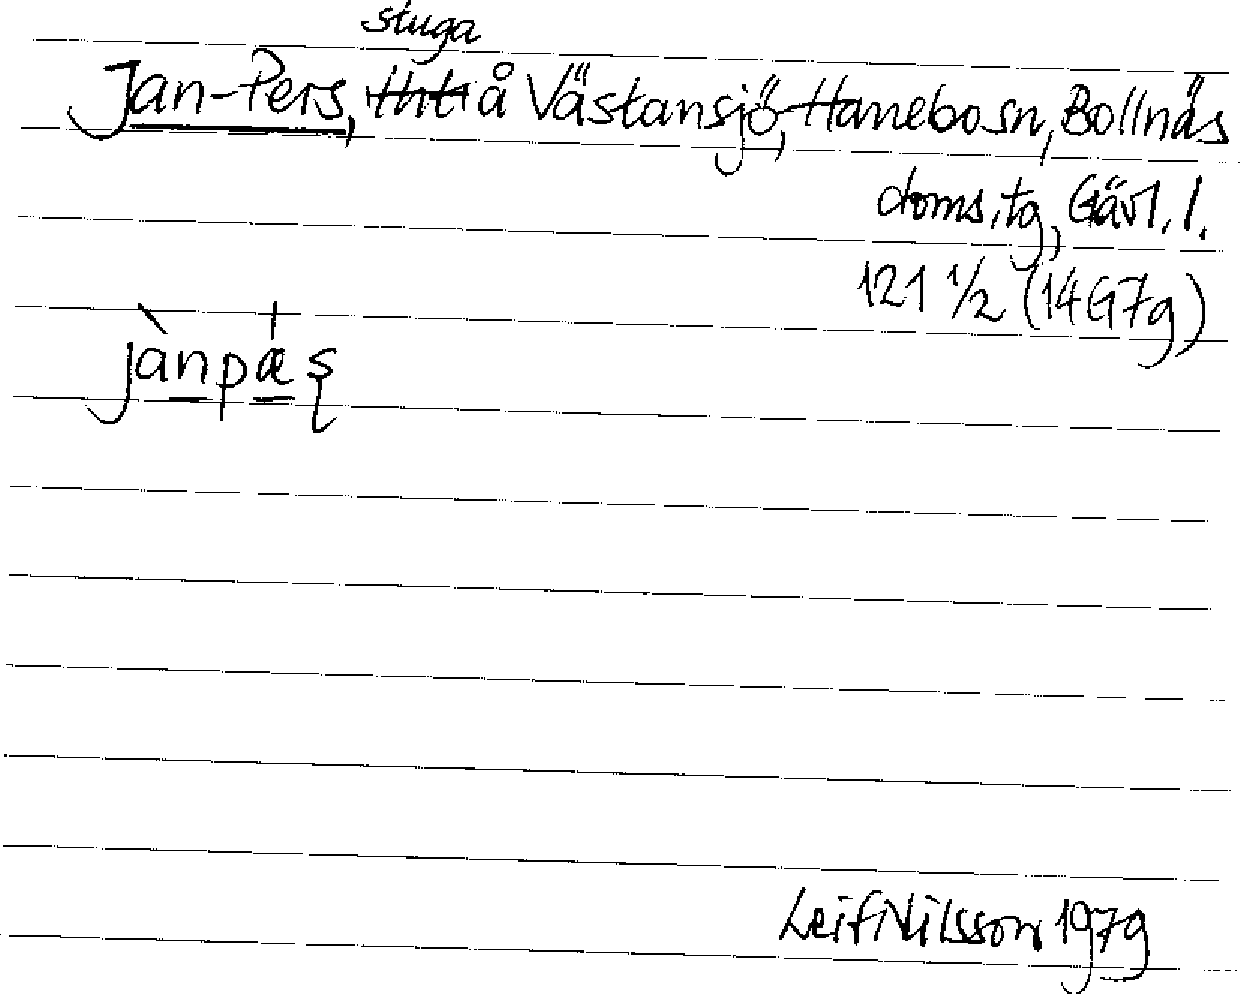 stuga
Jan-Pers, å Västansjö, Hanebo sn, Bollnäs
doms. tg, Gävl. l.
121 1/2 (14G7g)
jànpǽʂ
Leif Nilsson 1979